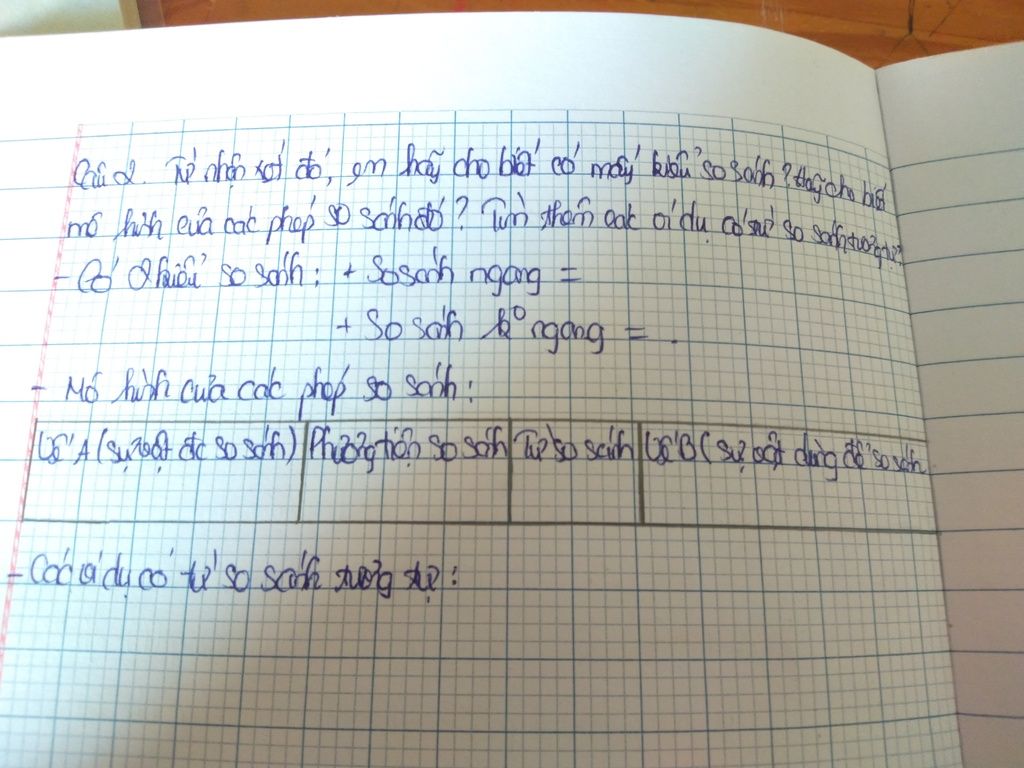 Câu 2. Từ nhận xét đó, em hãy cho biết có mấy kiểu so sánh? Hãy cho biết
mô hình của các phép so sánh đó? Tìm thêm các ví dụ có từ so sánh tương tự?
- Có 2 kiểu so sánh: + So sánh ngang =
+ So sánh k° ngang = .
- Mô hình của các phép so sánh:
Vế A (sự vật đc so sánh) Phương tiện so sánh Từ so sánh Vế B (sự vật dùng để so sánh
- Các ví dụ có từ so sánh tương tự: